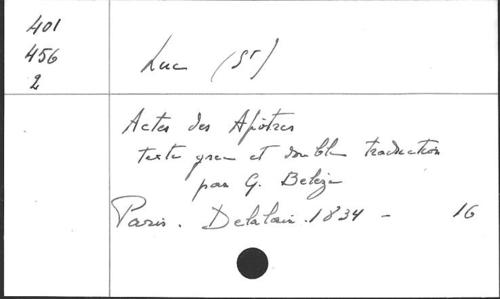 401
456
2
Luc (St)
Actes des Apôtres
texte grec et double traduction
par G. Beleze
Paris. Delalain. 1834 - 16